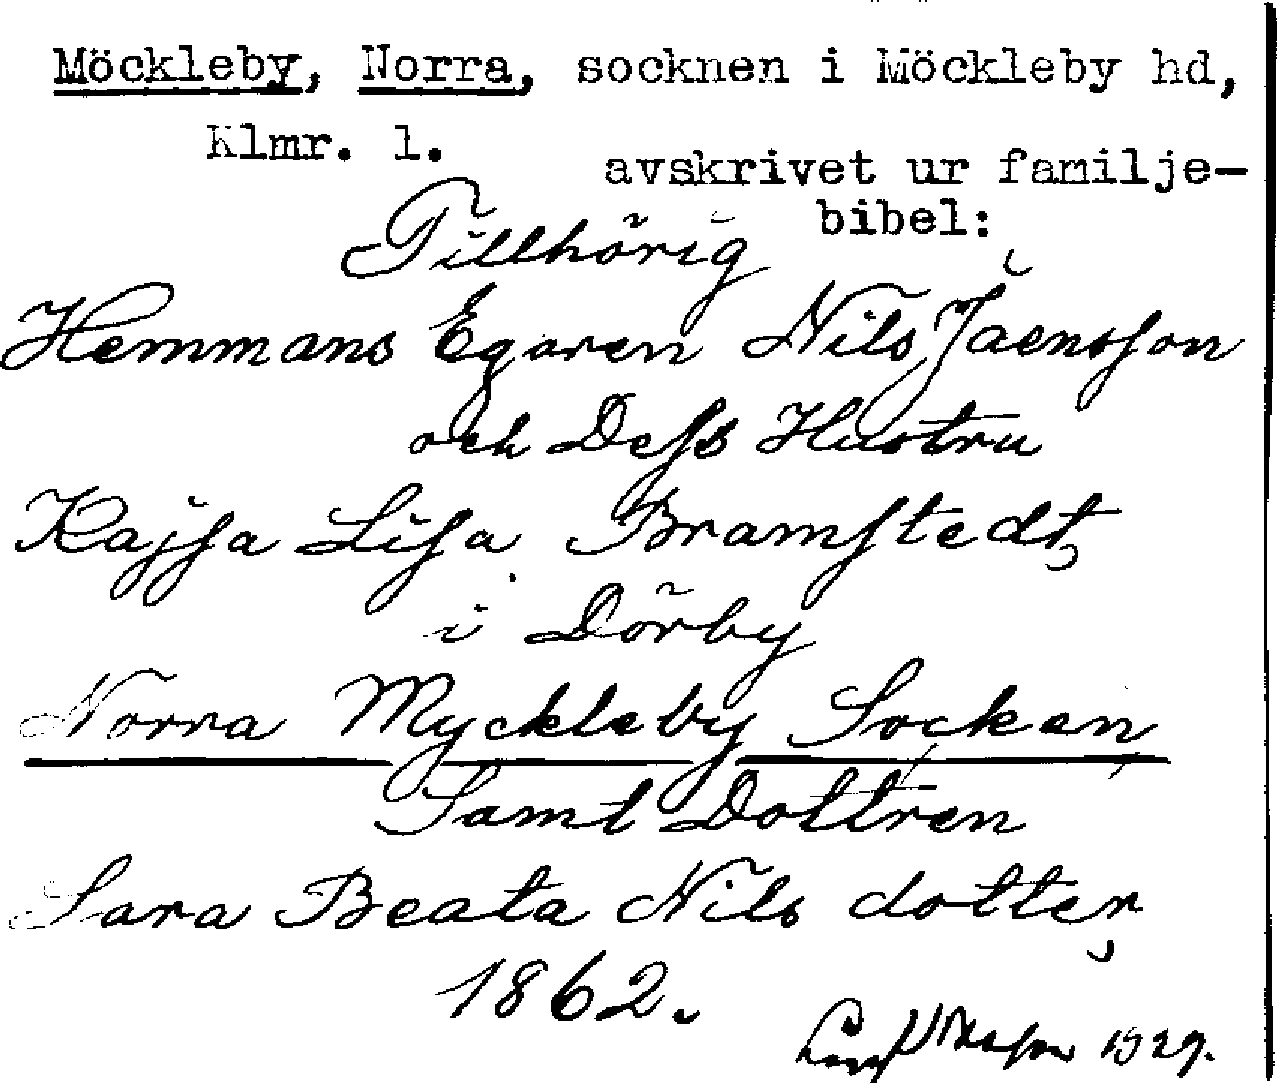 Möckleby, Norra, socknen i Möckleby hd,
Klmr. l.
avskrivet ur familje-
bibel:
Tillhörig
Hemmans Egaren Nils Jaensson
och Dess Hustru
Kajsa Lisa Bramstedt
i Dörby
Norra Myckleby Socken
Samt Dottren
Sara Beata Nils dotter
1862.
1929.